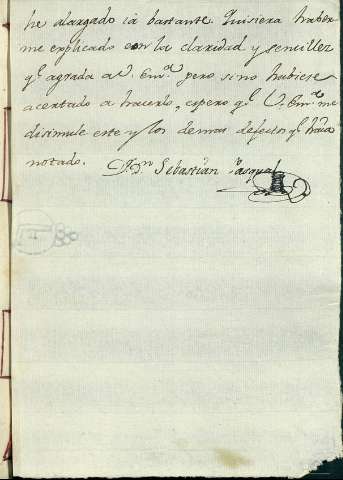 he alargado ia bastante. Quisiera haber
me explicado con la claridad y sencillez
q.e agrada a V. Em.a pero si no hubiese
acertado a hacerlo, espero q.e V. Em.a me
disimule este y los demas defectos q.e haia
notado.
Fr. Sebastian Pasqual